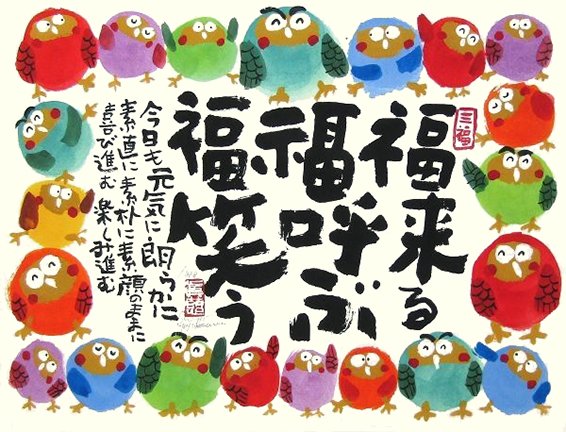 福来る
三福
福呼ぶ
福笑う
今日も元気に朗らかに
素直に素朴に素顔のままに
喜び進む 楽しみ進む